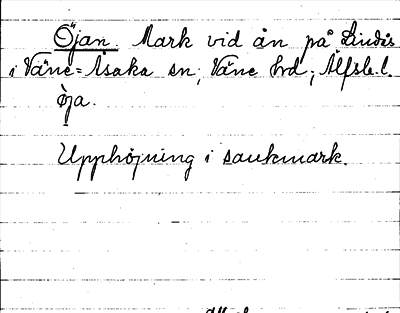 Öjan. Mark vid ån på Lindås
i Väne-Åsaka sn, Väne hrd, Älfsb. l.
ö̀ja.
Upphöjning i sankmark.